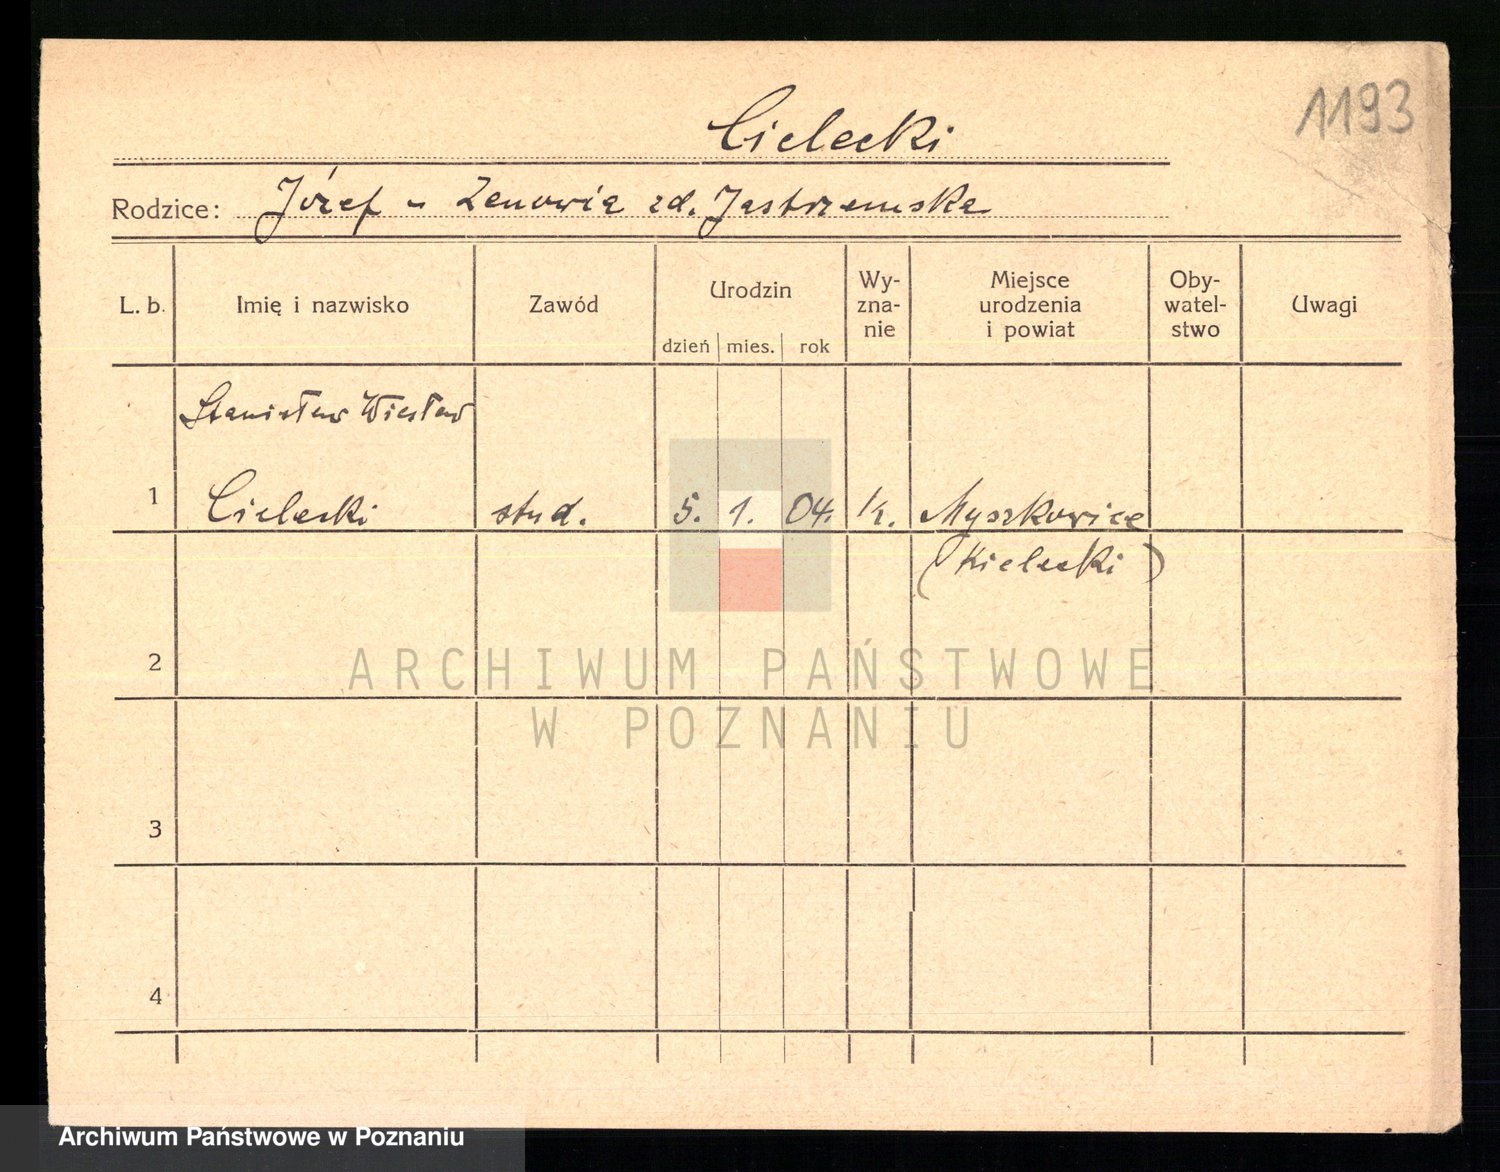 1193
Cielecki
Rodzice: Józef u Zenowia zd. Jastrzemska
L. b. Imię i nazwisko Zawód Urodzin Wy-zna-nie Miejsce urodzenia i powiat Oby-watel-stwo Uwagi
dzień mies. rok
Stanisław Wiesław
1 Cielecki stud. 5. 1. 04. k. Myszkowice
(Kielecki)
2
ARCHIWUM PAŃSTWOWE
W POZNANIU
3
4
Archiwum Państwowe w Poznaniu